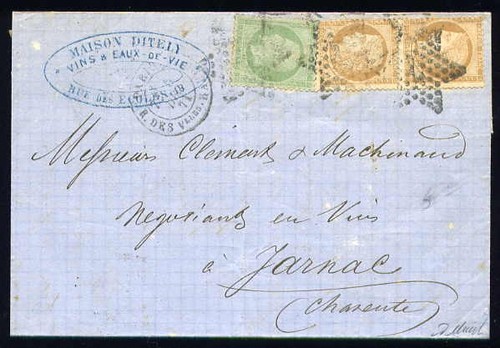 MAISON DITELY
VINS & EAUX-DE-VIE
RUE DES ECOLES
R. DES
Messieurs Clément & Machinaud
Negociants en Vins
à Jarnac
Charente